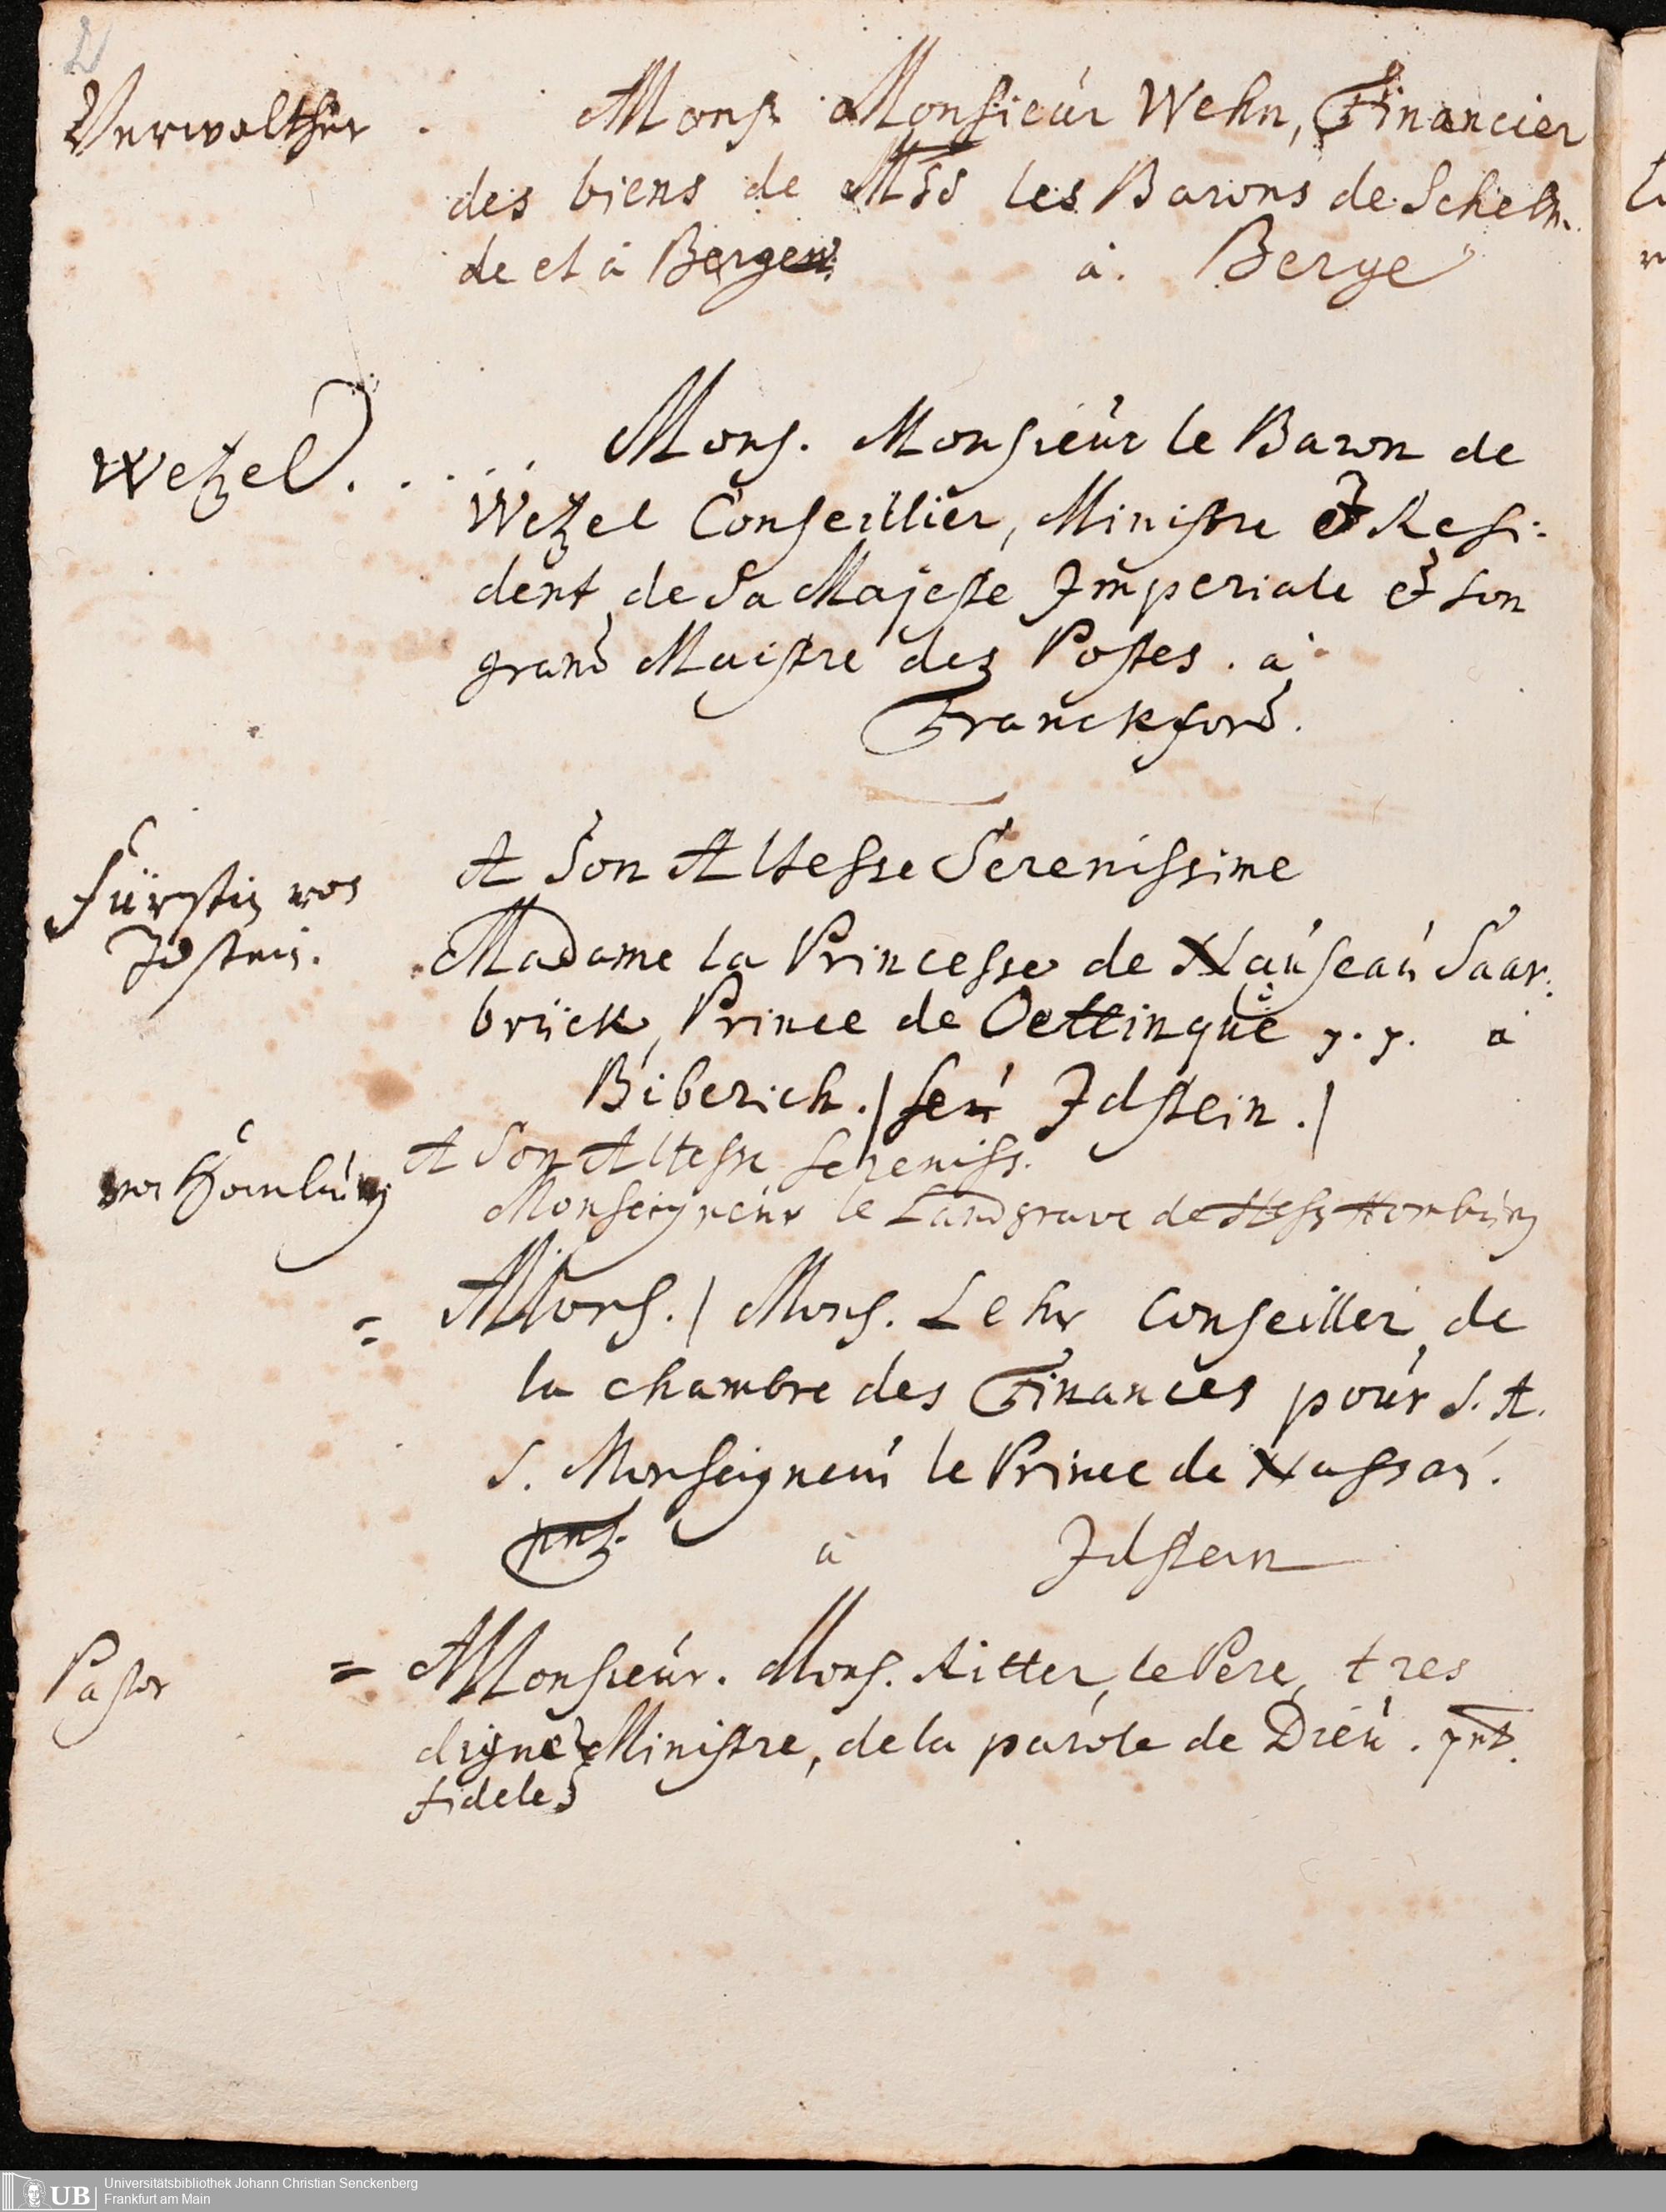 2
Verwalther . Mons. Monsieur Wehn, Financier
des biens de Mss les Barons de Schelm.
de et à Bergen. à. Berge
Wetzel. . . . . Mons. Monsieur le Baron de
Wetzel Conseillier, Ministre et Resi:
dent de Sa Majeste Imperiale et son
grand Maistre des Postes. a
Franckford.
A Son Altesse Serenissime
Fürstin von
Idstein.
Madame la Princesse de Nauseau Saar:
brück, Prince de Oettingue p. p. a
Biberich. / seu Idstein. /
A Son Altesse sereniss.
von Homburg
Monseigneur le Landgrave de Hess Homburg
= A Mons. / Mons. Lehr Conseiller de
la chambre des Finances pour S. A.
S. Monseigneur le Prince de Nassau.
à Idstein
Pastor = A Monsieur. Mons. Ritter, le Pere, tres
digne Ministre, de la parole de Dieu.
fidele
UB Universitätsbibliothek Johann Christian Senckenberg
Frankfurt am Main